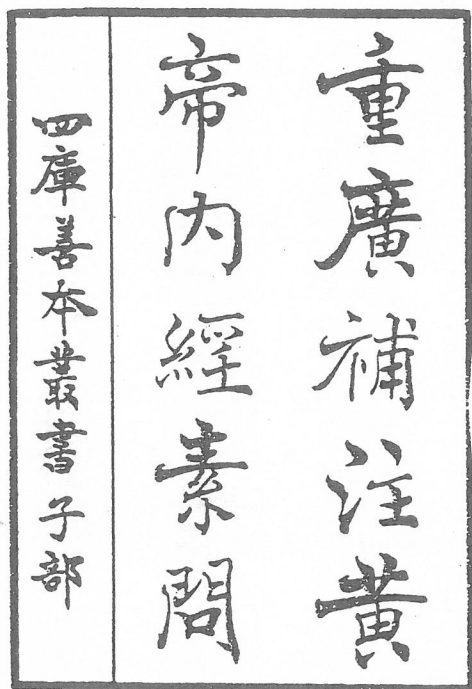 重廣補注黃
帝內經素問
四庫善本叢書子部